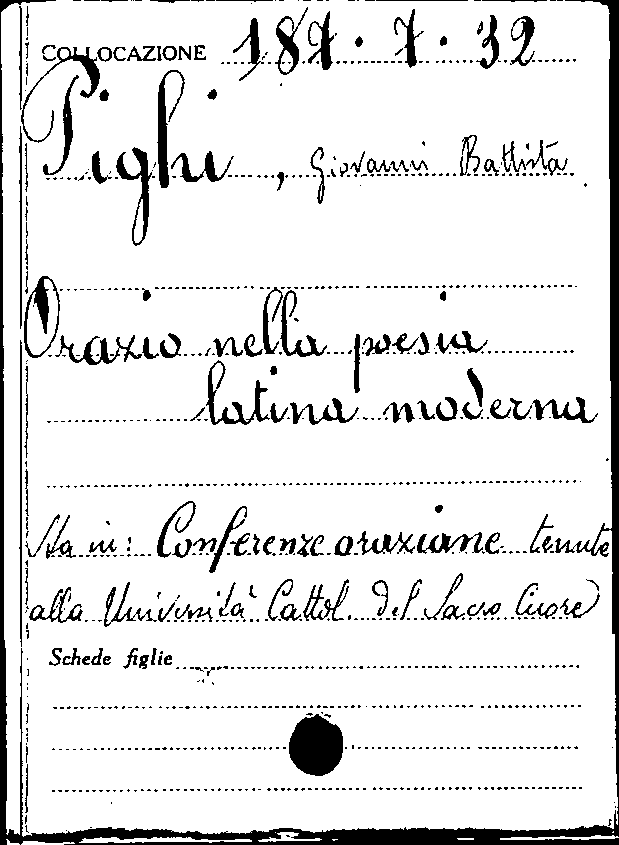 COLLOCAZIONE 187.7.32
Pighi, Giovanni Battista
Orazio nella poesia
latina moderna
Sta in: Conferenze oraziane tenute
alla Università Cattol. del Sacro Cuore
Schede figlie